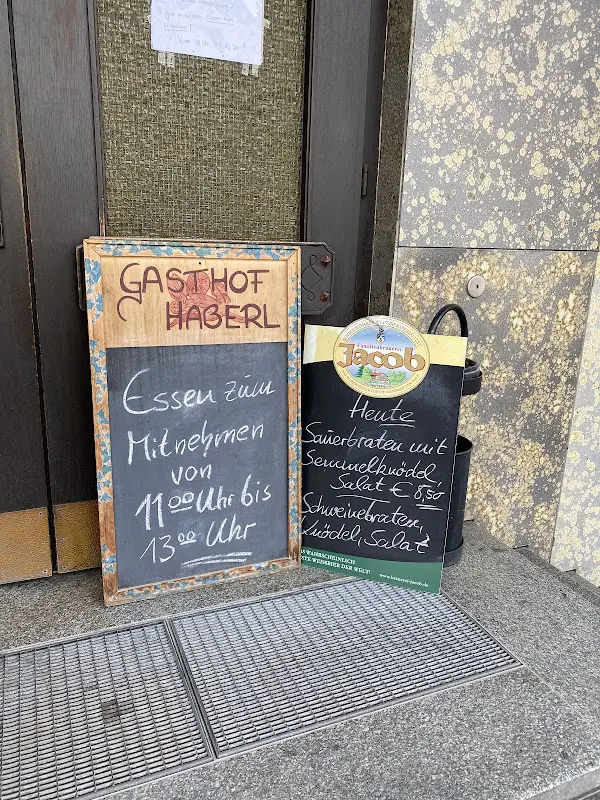 GASTHOF
HABERL
Essen zum
Mitnehmen
von
11 00 Uhr bis
13 00 Uhr
Familienbrauerei
Jacob
Heute
Sauerbraten mit
Semmelknödel,
Salat € 8,50
Schweinebraten,
Knödel, Salat
WAHRSCHEINLICH
STE WEISSBIER DER WELT!